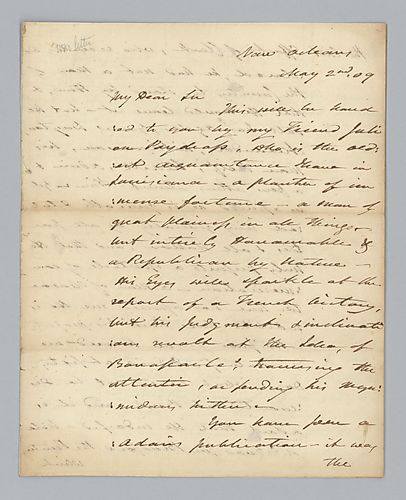 New Orleans
May 2nd 09
My Dear Sir
This will be hand
ed to you by my Friend Juli
en Poydrass, He is the old
est acquaintance I have in
Louisiana — a planter of im
mense fortune — a man of
great plainness in all things
but entirely Honourable &
a Republican by Nature —
His Eyes will sparkle at the
report of a French Victory,
but his Judgment & inclinati
ons revolt at the Idea, of
Bonaparte's, turning the
attention, or sending his
hither —
You have seen
Adairs publication — it was
the